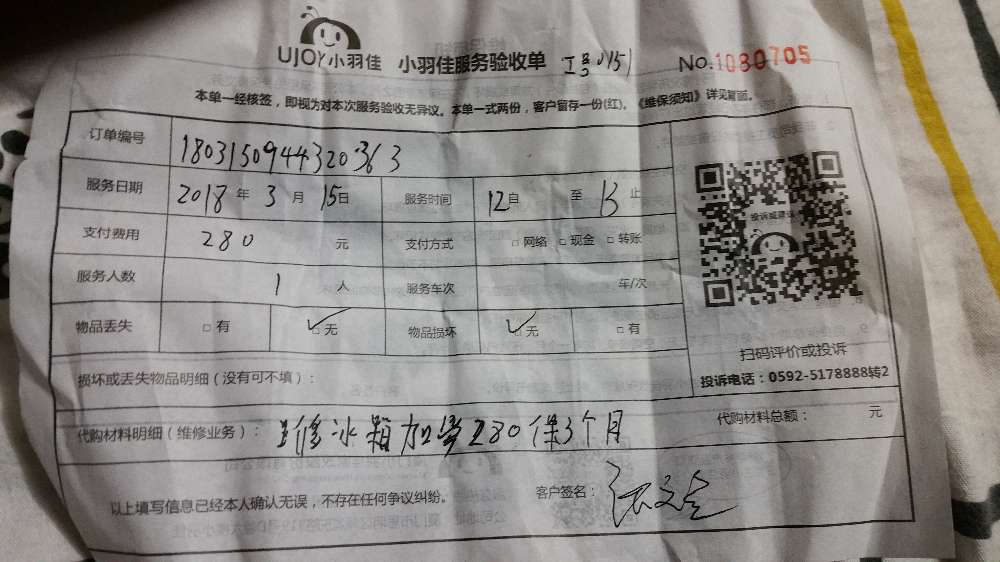 UJOY小羽佳 小羽佳服务验收单 工号0151 No.1080705
本单一经核签，即视为对本次服务验收无异议。本单一式两份，客户留存一份(红)。《维保须知》详见背面。
订单编号 180315094432036 3
服务日期 2018年3月15日 服务时间 12自 至 13止
支付费用 280 元 支付方式 □网络 □现金 □转账
服务人数 1 人 服务车次 车/次
物品丢失 □有 ✓□无 物品损坏 ✓□无 □有
投诉或建议
扫码评价或投诉
投诉电话：0592-5178888转2
损坏或丢失物品明细（没有可不填）：
代购材料明细（维修业务）： 维修冰箱加雪280保3个月 代购材料总额： 元
以上填写信息已经本人确认无误，不存在任何争议纠纷。 客户签名：